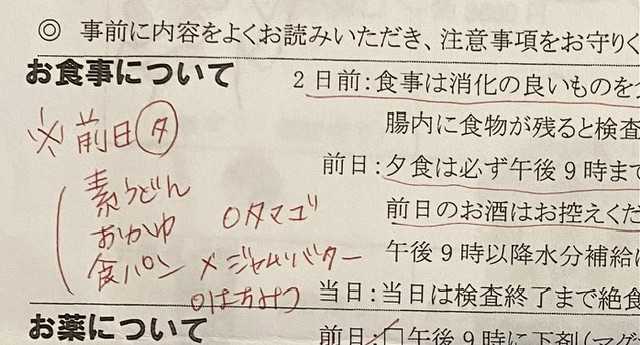 ◎ 事前に内容をよくお読みいただき、注意事項をお守りく
お食事について
2日前:食事は消化の良いものを
腸内に食物が残ると検査
※前日夕
前日:夕食は必ず午後9時まで
素うどん
おかゆ ○タマゴ
前日のお酒はお控えくだ
食パン ×ジャムバター
午後9時以降水分補給
○はちみつ
当日:当日は検査終了まで絶食
お薬について
前日:□午後9時に下剤(マグ